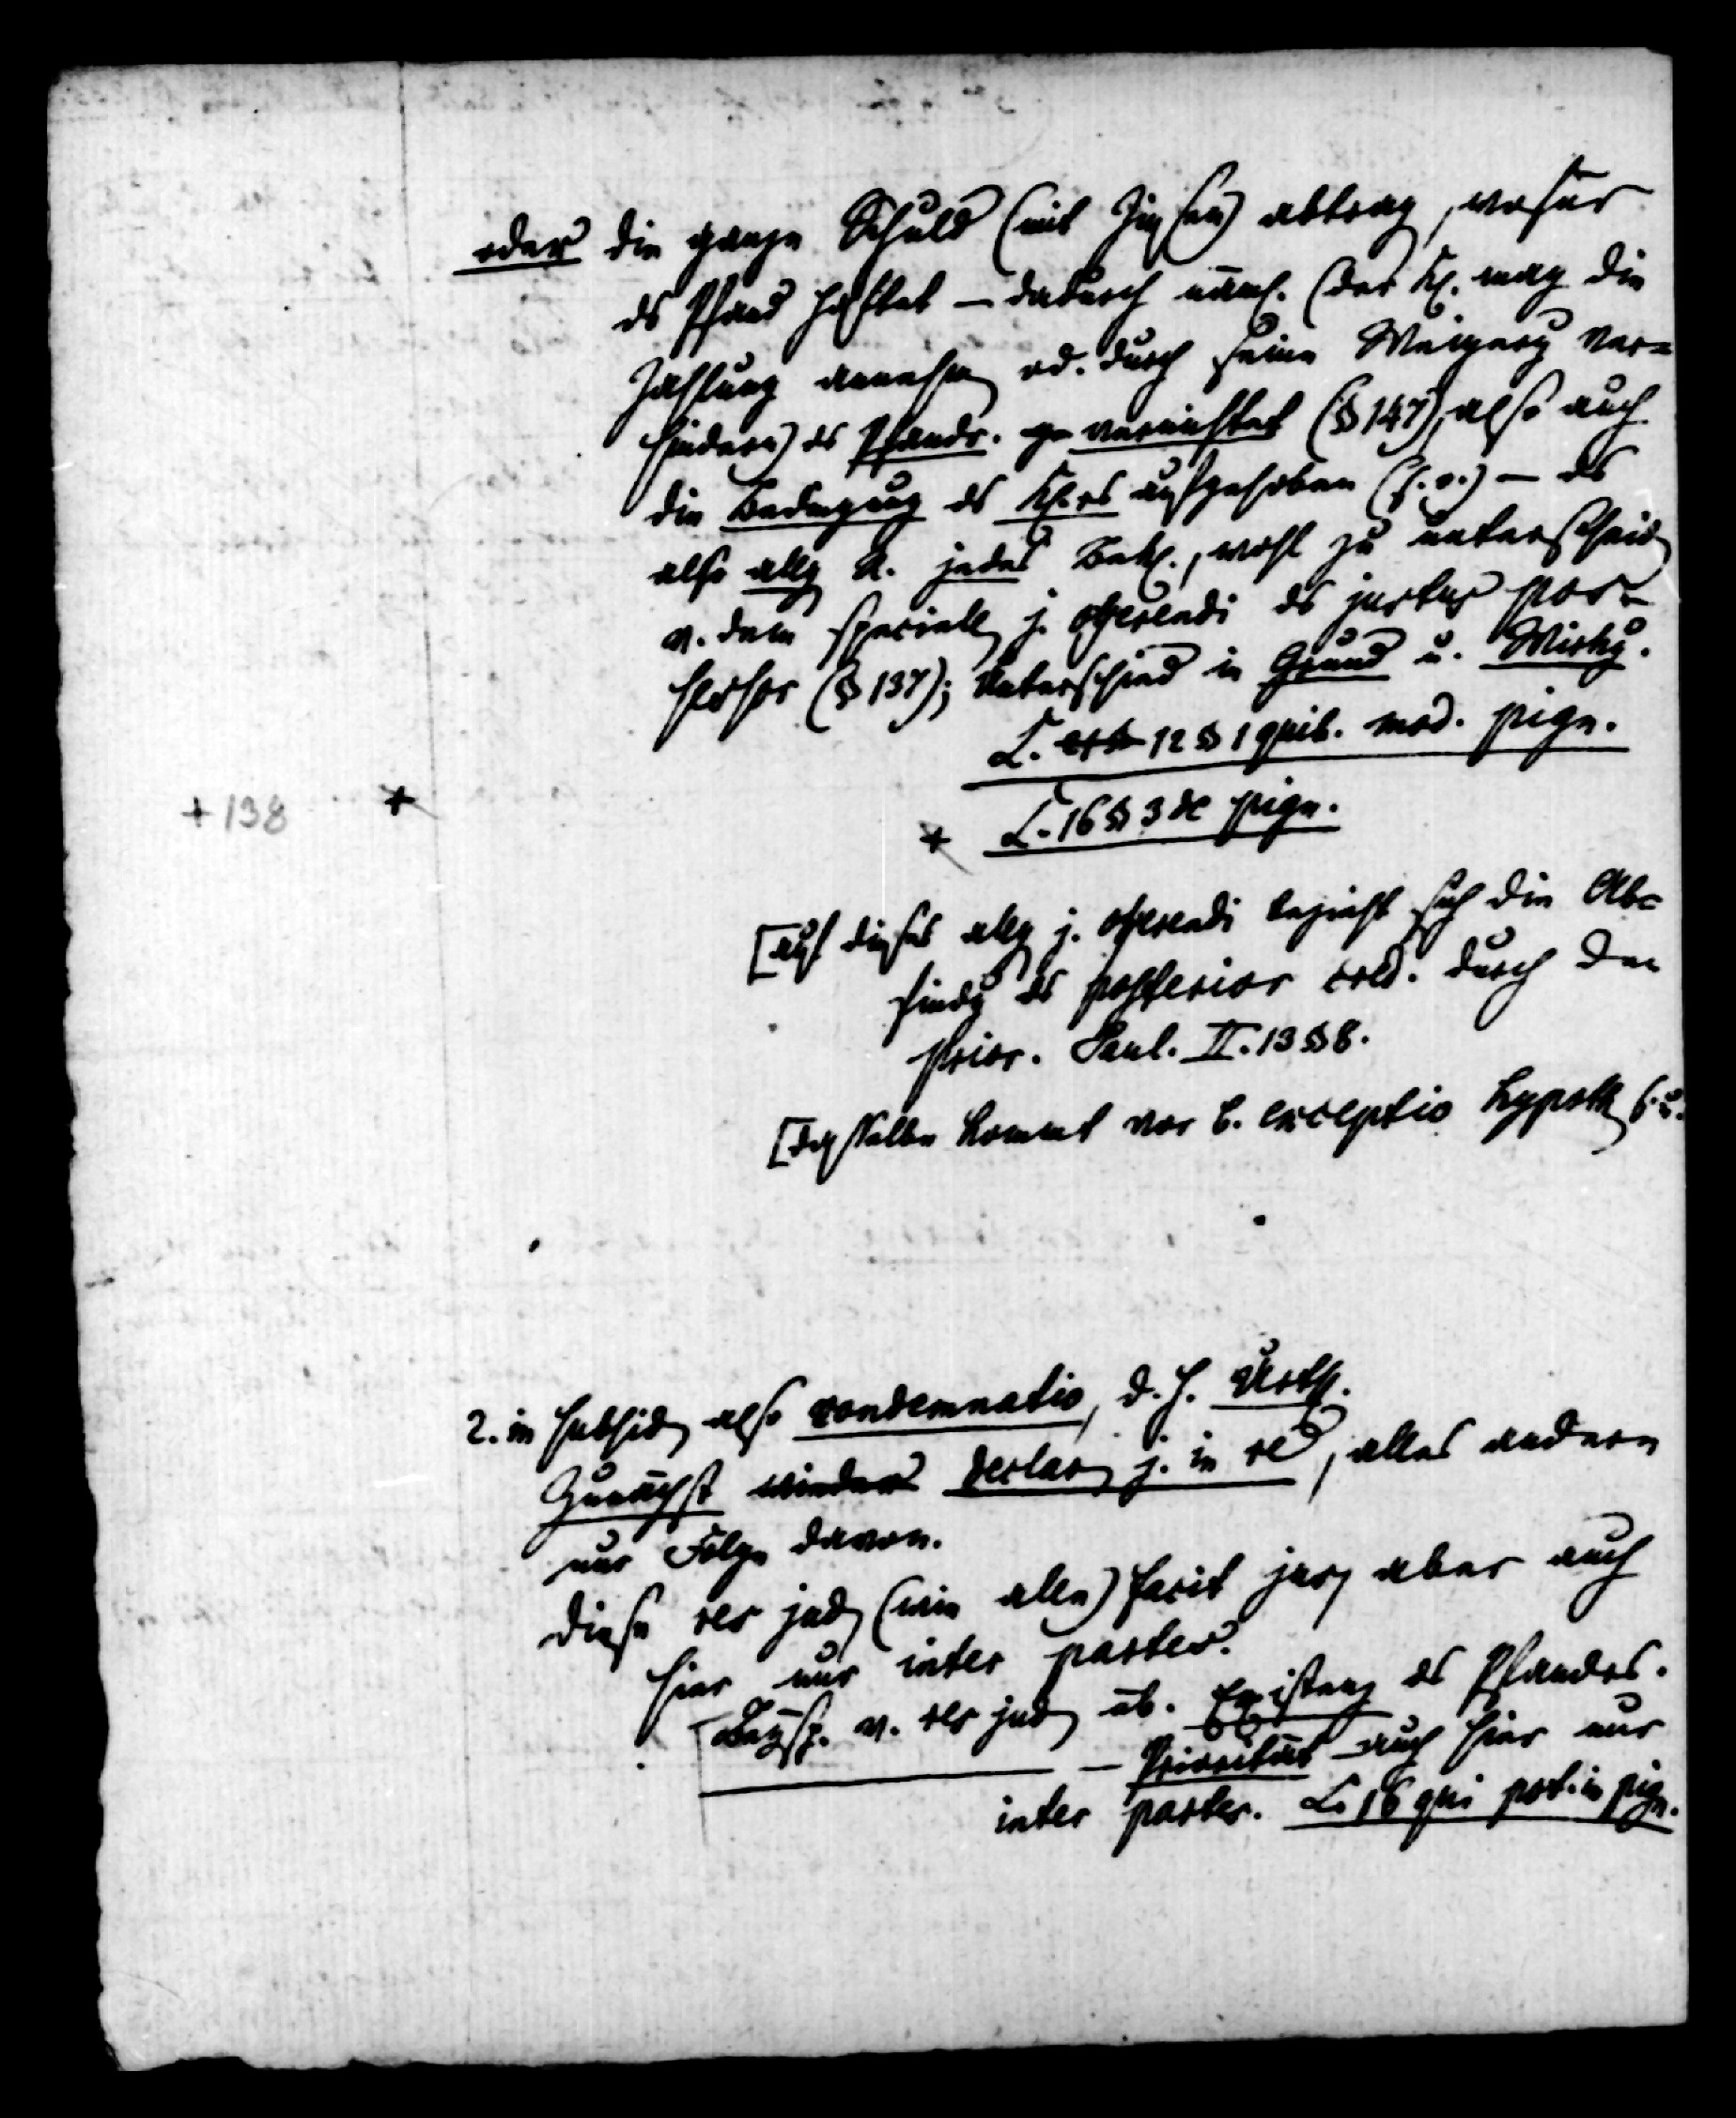 oder die ganze Schuld (mit Zinsen) abtrag, wofür
ds Pfand haftet — dadurch näml. (der Kl. mag die
Zahlung annehm od. durch seine Weigerg ver=
hindern) ds Pfandr. vernichtet (§ 147), also auch
die Bedingung ds Kl.rs aufgehoben (s. o.) — ds
also allg R. jedes Bekl., wohl zu unterscheid
v. dem speciell j. offerendi ds justus pos-
sessor (§ 137); Unterschied in Grund u. Wirkg.
L. 12 § 1 quib. mod. pign.
+ 138 +
+ L. 16 § 3 de pign.
[auf dieses allg j. offerendi bezieht sich die Ab=
findg ds posterior cred. durch den
prior. Paul. II. 13 § 8.
[dasselbe kommt vor b. exceptio hypoth s. u.
2. in subsid also condemnatio, d. h. Urth.
Zunächst wieder declar j. in re, alles andere
nur Folge davon.
Diese res jud (wie alle) facit jus, aber auch
hier nur inter partes.
[Beysp. v. res jud üb. Existenz ds Pfandes.
— Priorität auch hier nur
inter partes. L. 16 qui pot. in pign.